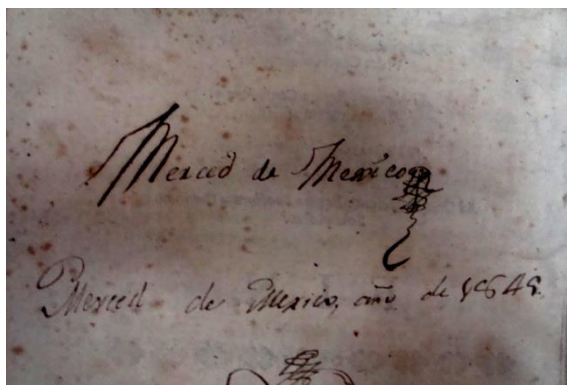 Merced de Mexico
Merced de Mexico, año de